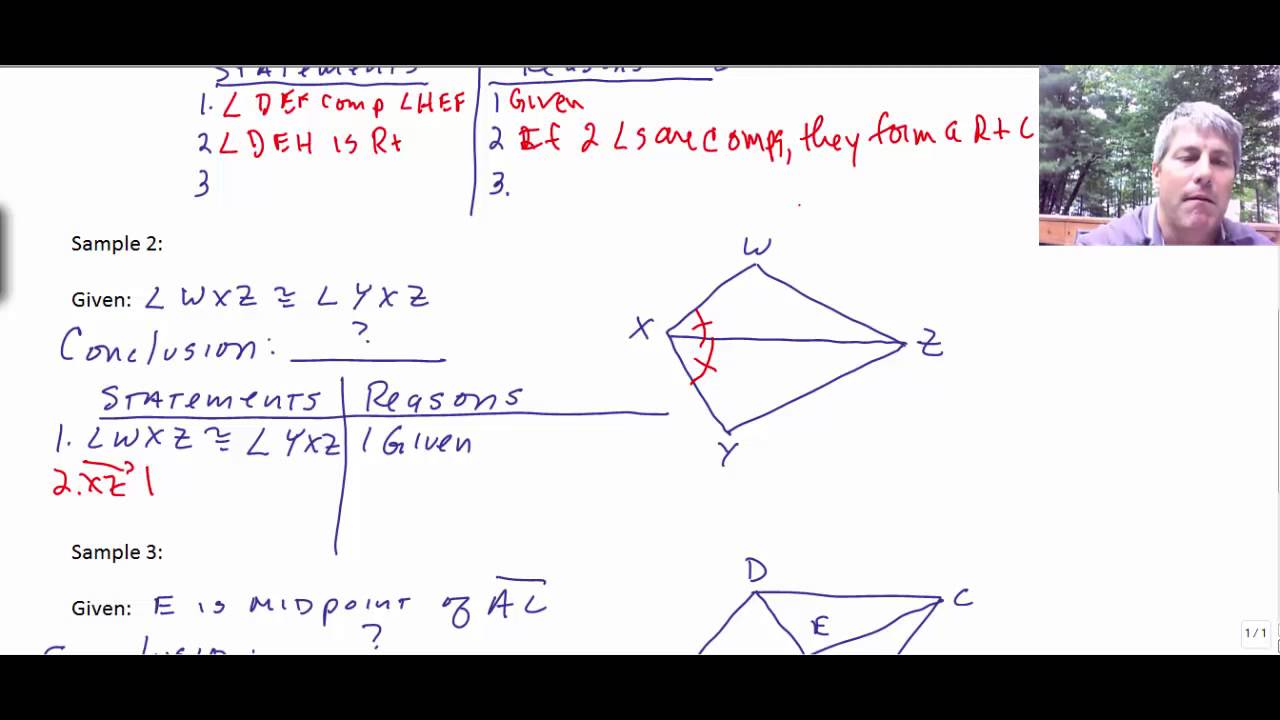 Statements Reasons
1. ∠ DEF comp ∠HEF 1 Given
2 ∠ DEH is Rt 2 If 2 ∠s are comp, they form a Rt ∠
3 3.
Sample 2:
W
Given: ∠ WXZ ≅ ∠ YXZ
X
Z
?
Conclusion:
Statements Reasons
1. ∠WXZ ≅ ∠ YXZ 1 Given
Y
2. XZ
Sample 3:
D
Given: E is midpoint of AC
C
E
?
1 / 1